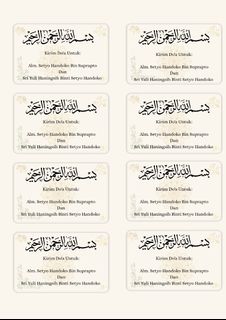 بسم الله الرحمن الرحيم
Kirim Do'a Untuk:
Alm. Setyo Handoko Bin Suprapto
Dan
Sri Yuli Haningsih Binti Setyo Handoko
بسم الله الرحمن الرحيم
Kirim Do'a Untuk:
Alm. Setyo Handoko Bin Suprapto
Dan
Sri Yuli Haningsih Binti Setyo Handoko
بسم الله الرحمن الرحيم
Kirim Do'a Untuk:
Alm. Setyo Handoko Bin Suprapto
Dan
Sri Yuli Haningsih Binti Setyo Handoko
بسم الله الرحمن الرحيم
Kirim Do'a Untuk:
Alm. Setyo Handoko Bin Suprapto
Dan
Sri Yuli Haningsih Binti Setyo Handoko
بسم الله الرحمن الرحيم
Kirim Do'a Untuk:
Alm. Setyo Handoko Bin Suprapto
Dan
Sri Yuli Haningsih Binti Setyo Handoko
بسم الله الرحمن الرحيم
Kirim Do'a Untuk:
Alm. Setyo Handoko Bin Suprapto
Dan
Sri Yuli Haningsih Binti Setyo Handoko
بسم الله الرحمن الرحيم
Kirim Do'a Untuk:
Alm. Setyo Handoko Bin Suprapto
Dan
Sri Yuli Haningsih Binti Setyo Handoko
بسم الله الرحمن الرحيم
Kirim Do'a Untuk:
Alm. Setyo Handoko Bin Suprapto
Dan
Sri Yuli Haningsih Binti Setyo Handoko